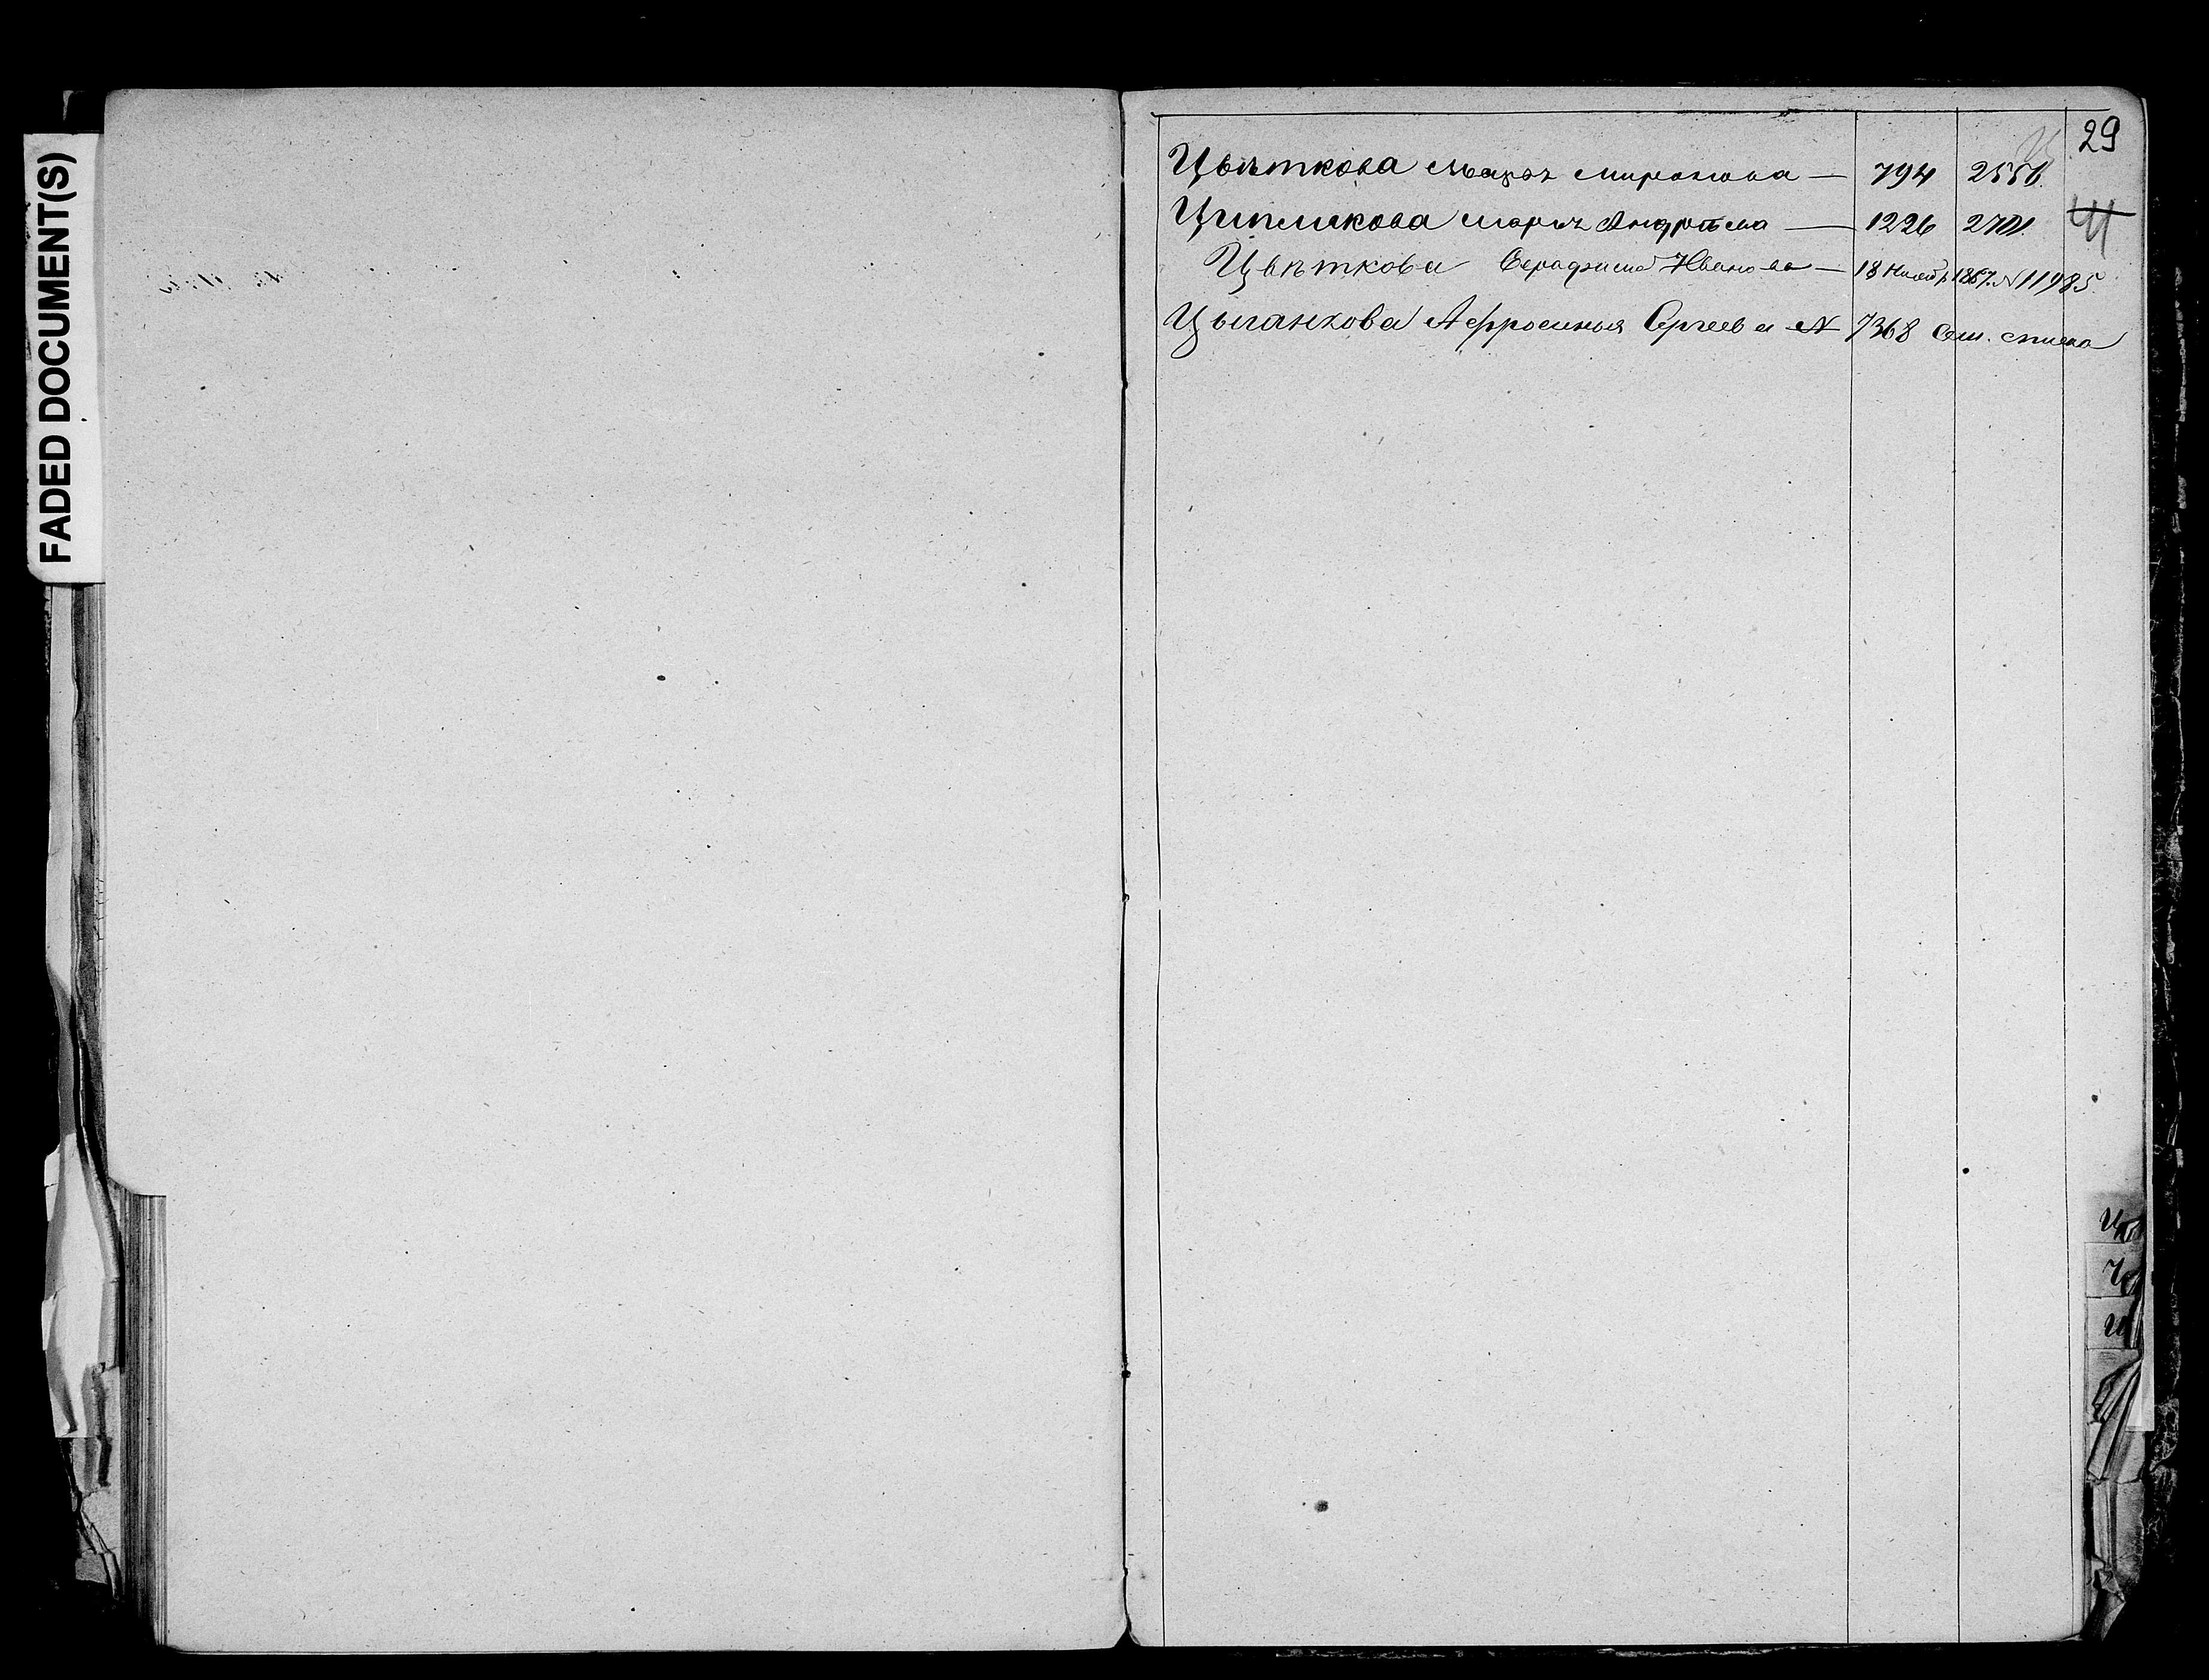 FADED DOCUMENT(S)
29
Цвѣткова Марья Миронова — 794 2556.
Ципликова Марья Андрѣева — 1226 2701.
Цвѣткова Серафима Иванова — 18 Нояб. 1867. N 11985.
Цыганкова Афросинья Сергѣева N 7368 сем. списка